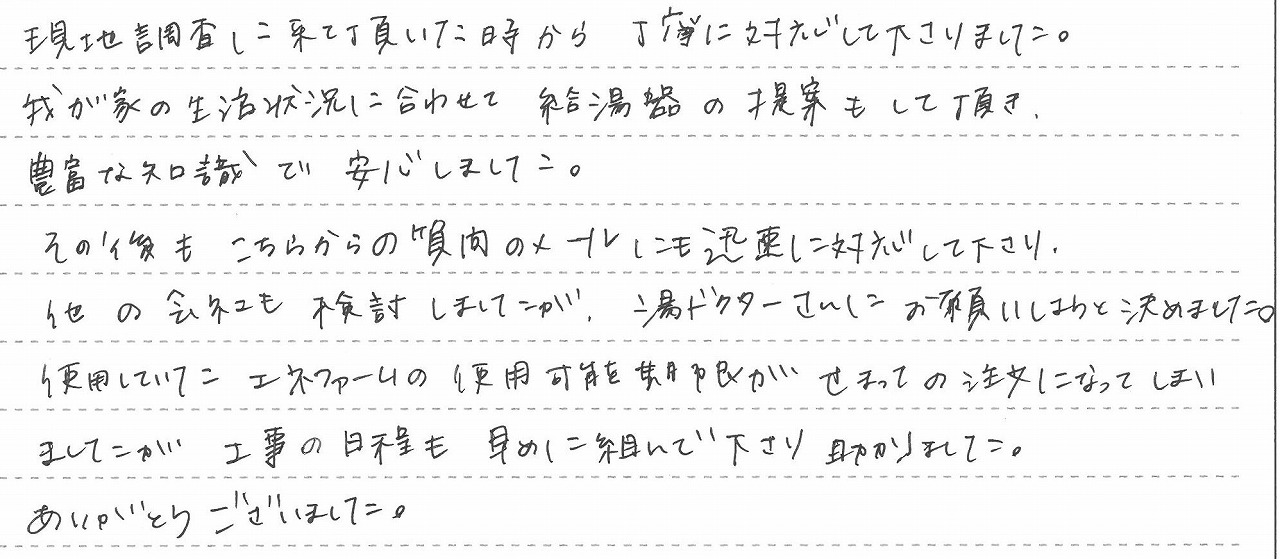 現地調査に来て頂いた時から 丁寧に対応して下さりました。
我が家の生活状況に合わせて 給湯器の提案もして頂き、
豊富な知識で 安心しました。
その後も こちらからの質問のメールにも迅速に対応して下さり、
他の会社も 検討しましたが、湯ドクターさんに お願いしようと決めました。
使用していた エネファームの使用可能期限が せまっての注文になってしまい
ましたが 工事の日程も 早めに組んで下さり 助かりました。
ありがとうございました。